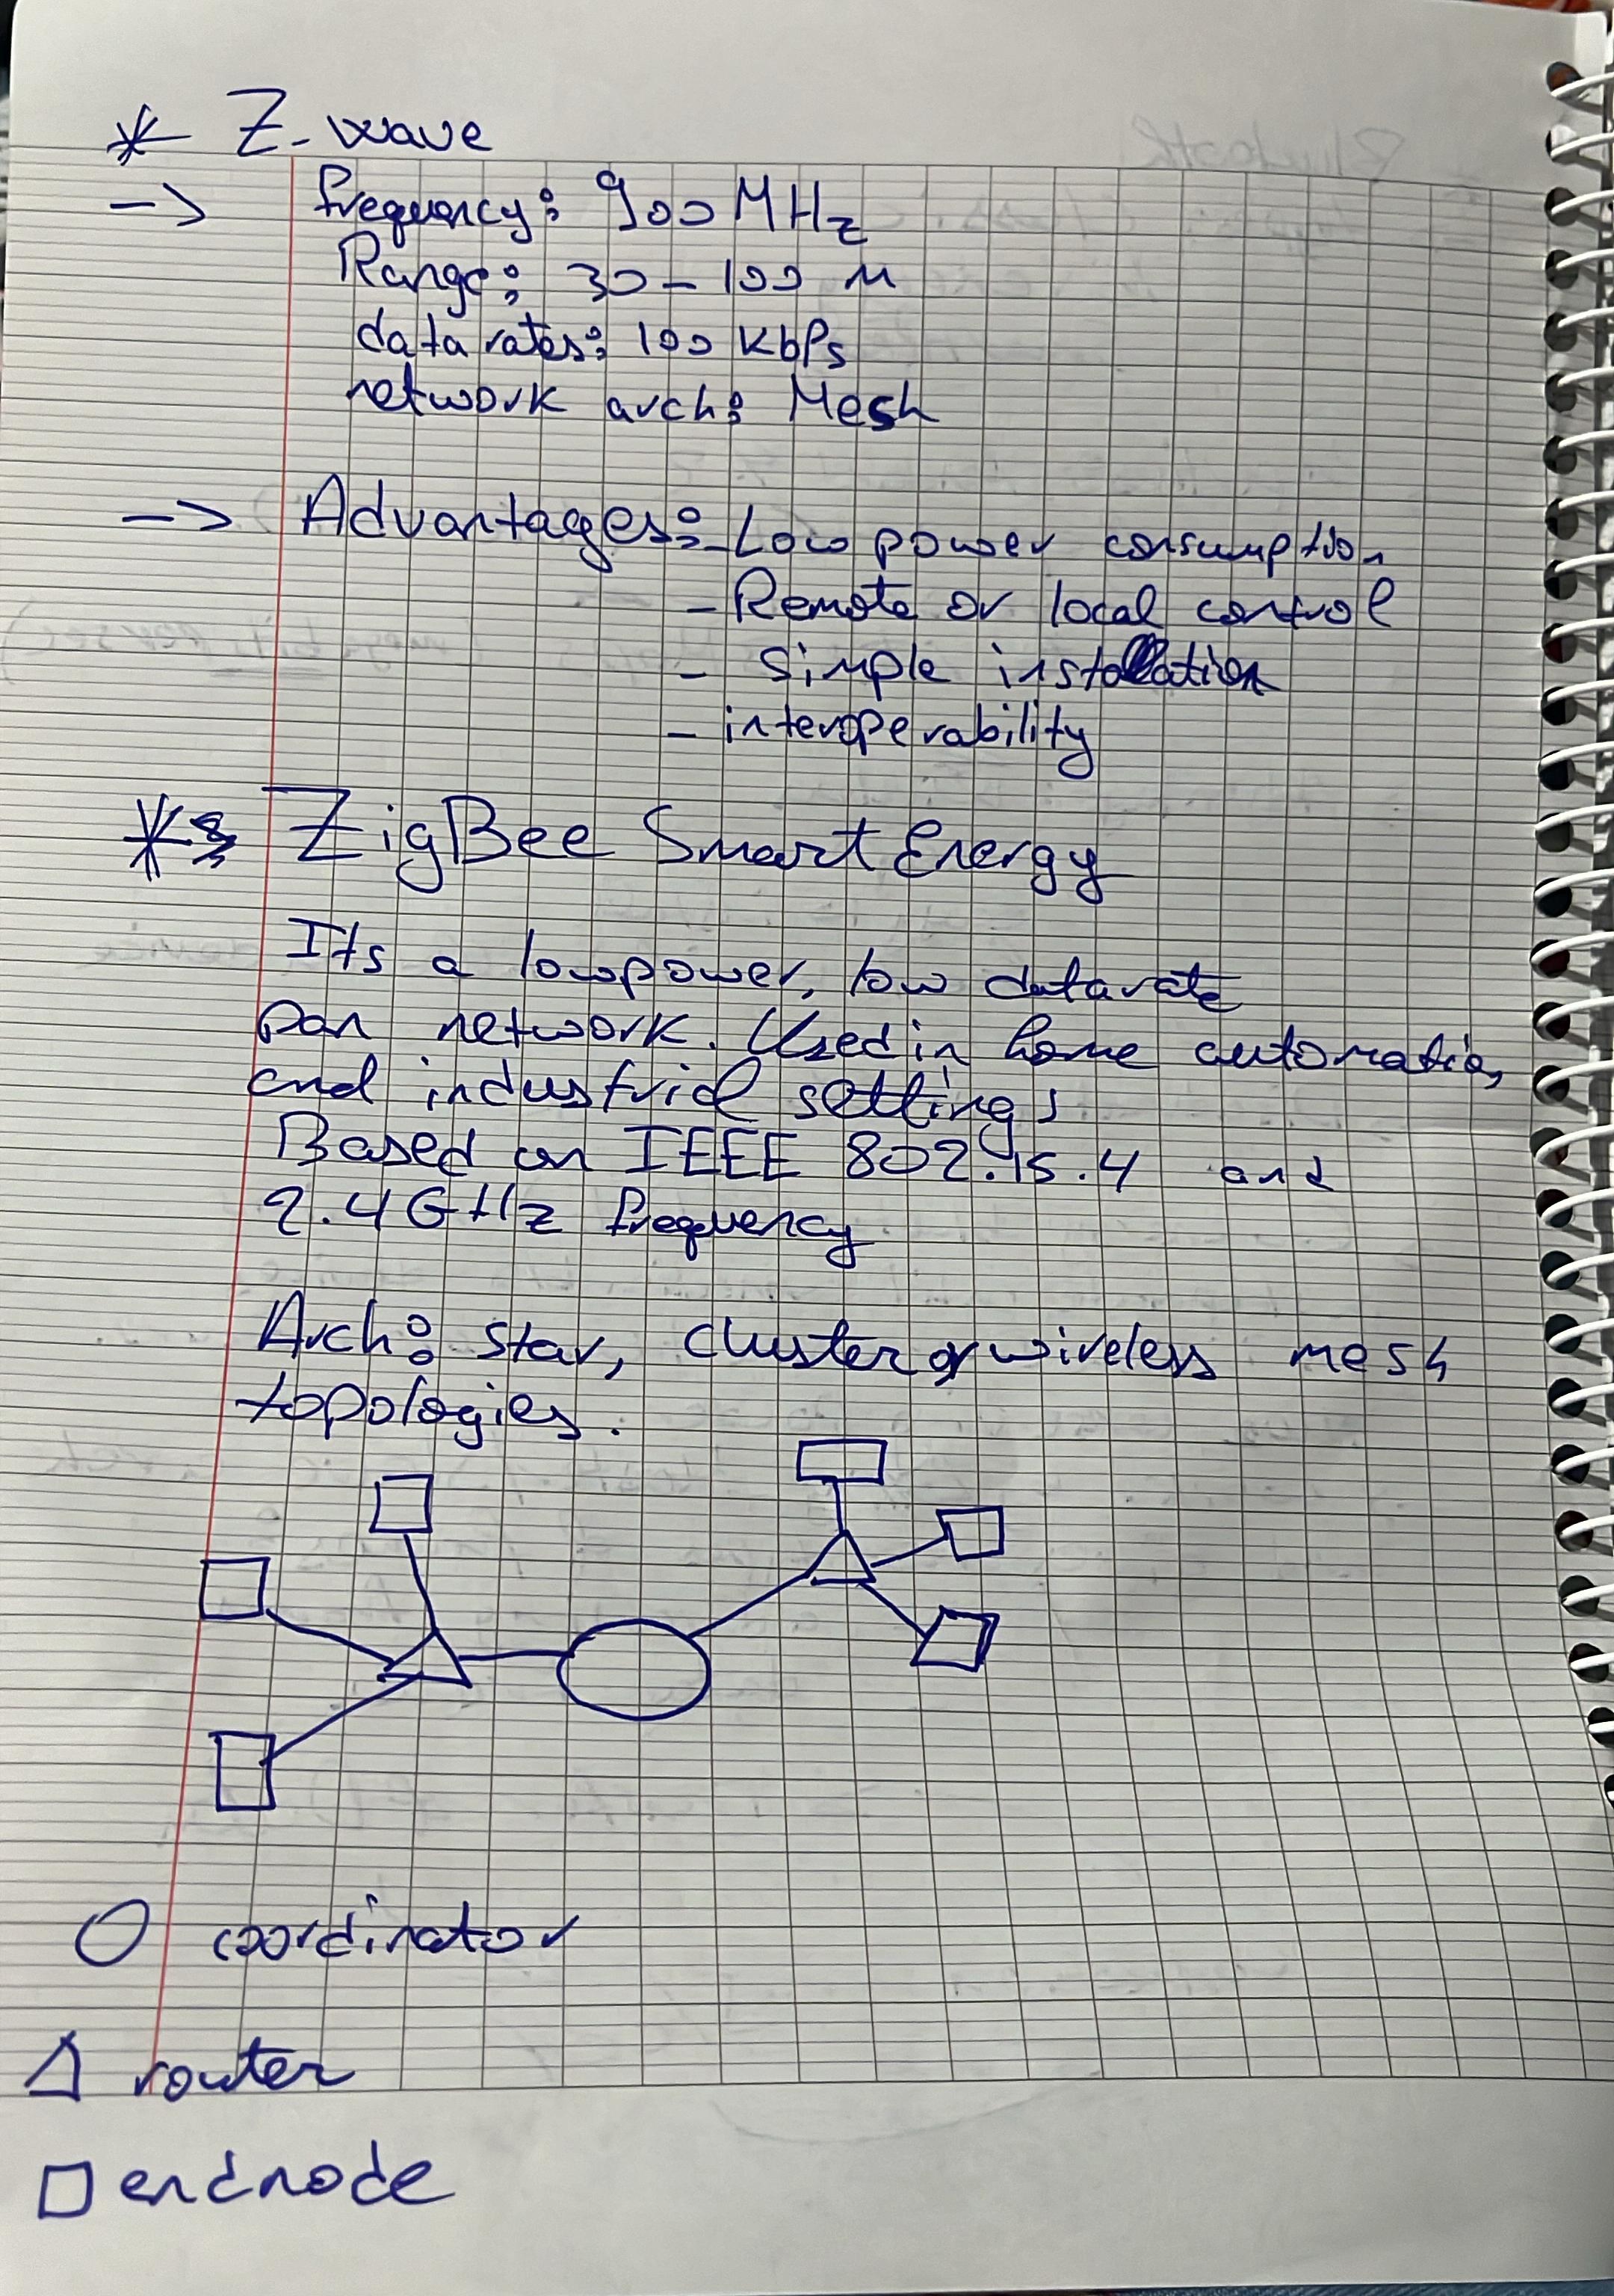 * Z-wave
-> frequency: 900 MHz
Range: 30-100 m
data rates: 100 Kbps
network arch: Mesh
-> Advantages: - Low power consumption
- Remote or local control
- Simple installation
- interoperability
* ZigBee Smart Energy
Its a lowpower, low datarate
Pan network. Used in home automation,
and industrial settings
Based on IEEE 802.15.4 and
2.4GHz frequency
Arch: star, cluster or wireless mesh
topologies.
coordinator
router
endnode